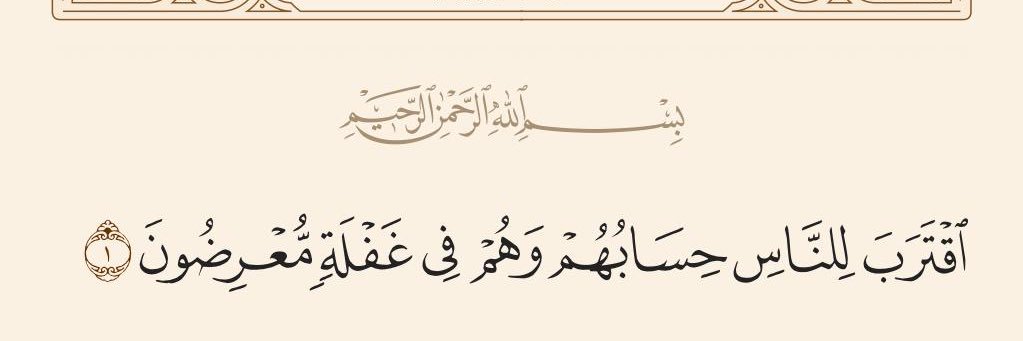 بِسْمِ ٱللَّهِ ٱلرَّحْمَٰنِ ٱلرَّحِيمِ
ٱقْتَرَبَ لِلنَّاسِ حِسَابُهُمْ وَهُمْ فِى غَفْلَةٍ مُّعْرِضُونَ ١